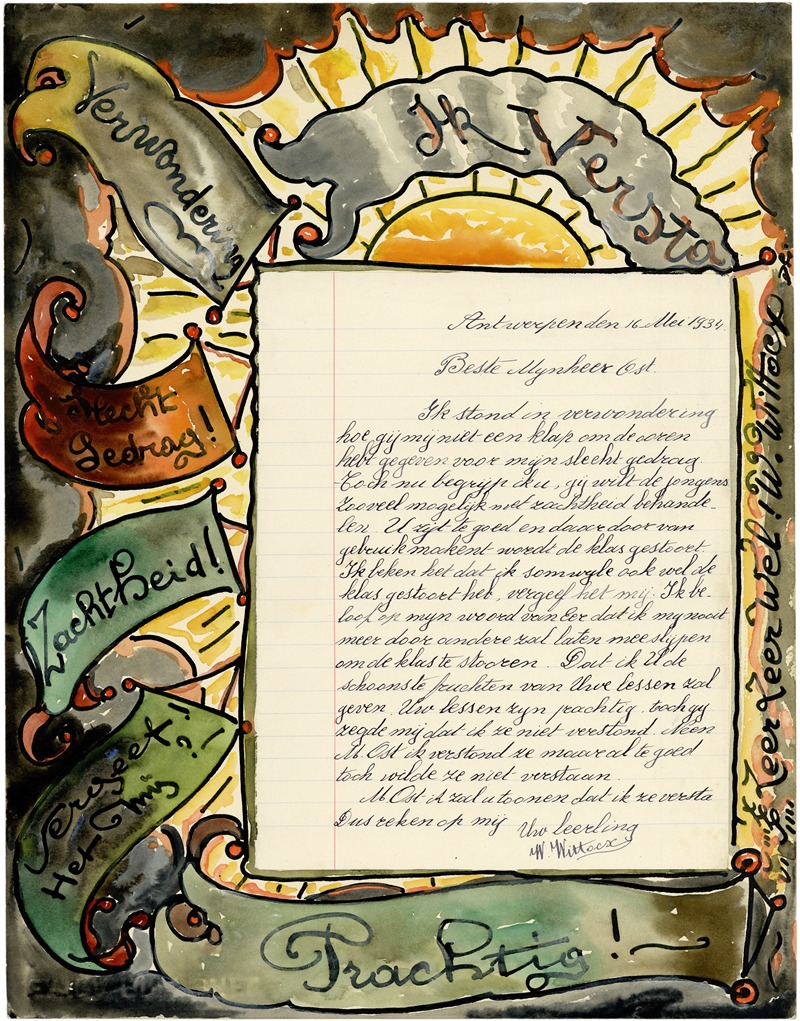 Verwondering
Ik Versta
Slecht
Gedrag!
Zachtheid!
Vergeef
Het mij
?!
Antwerpen den 16 Mei 1934.
Beste Mynheer Ost.
Ik stond in verwondering
hoe gij mij niet een klap om de ooren
hebt gegeven voor mijn slecht gedrag.
Toch nu begrijp ik u, gij wilt de jongens
zooveel mogelijk met zachtheid behande-
len. U zijt te goed en daar door van
gebruik makent wordt de klas gestoort.
Ik beken het dat ik somwyle ook wel de
klas gestoort heb, vergeef het mij. Ik be-
loof op myn woord van Eer dat ik my nooit
meer door andere zal laten meeslepen
om de klas te stooren. Dat ik U de
schoonste fruchten van Uwe lessen zal
geven. Uw lessen zyn prachtig. toch gy
zegde mij dat ik ze niet verstond. Neen
M. Ost ik verstond ze maar al te goed
toch wilde ze niet verstaan.
M. Ost ik zal u toonen dat ik ze versta
Dus reken op mij
Uw leerling
W. Wittocx
Prachtig!
Zeer Zeer Wel! W. Wittocx